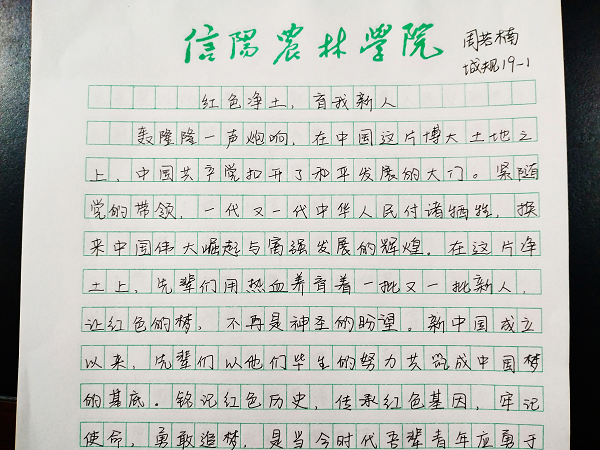 信阳农林学院
周若楠
城规19-1
红色净土，育我新人
轰隆隆一声炮响，在中国这片博大土地之
上，中国共产党打开了和平发展的大门。紧随
党的带领，一代又一代中华人民付诸牺牲，换
来中国伟大崛起与富强发展的辉煌。在这片净
土上，先辈们用热血养育着一批又一批新人，
让红色的梦，不再是神圣的盼望。新中国成立
以来，先辈们以他们毕生的努力共筑成中国梦
的基底。铭记红色历史，传承红色基因，牢记
使命，勇敢追梦，是当今时代吾辈青年应勇于